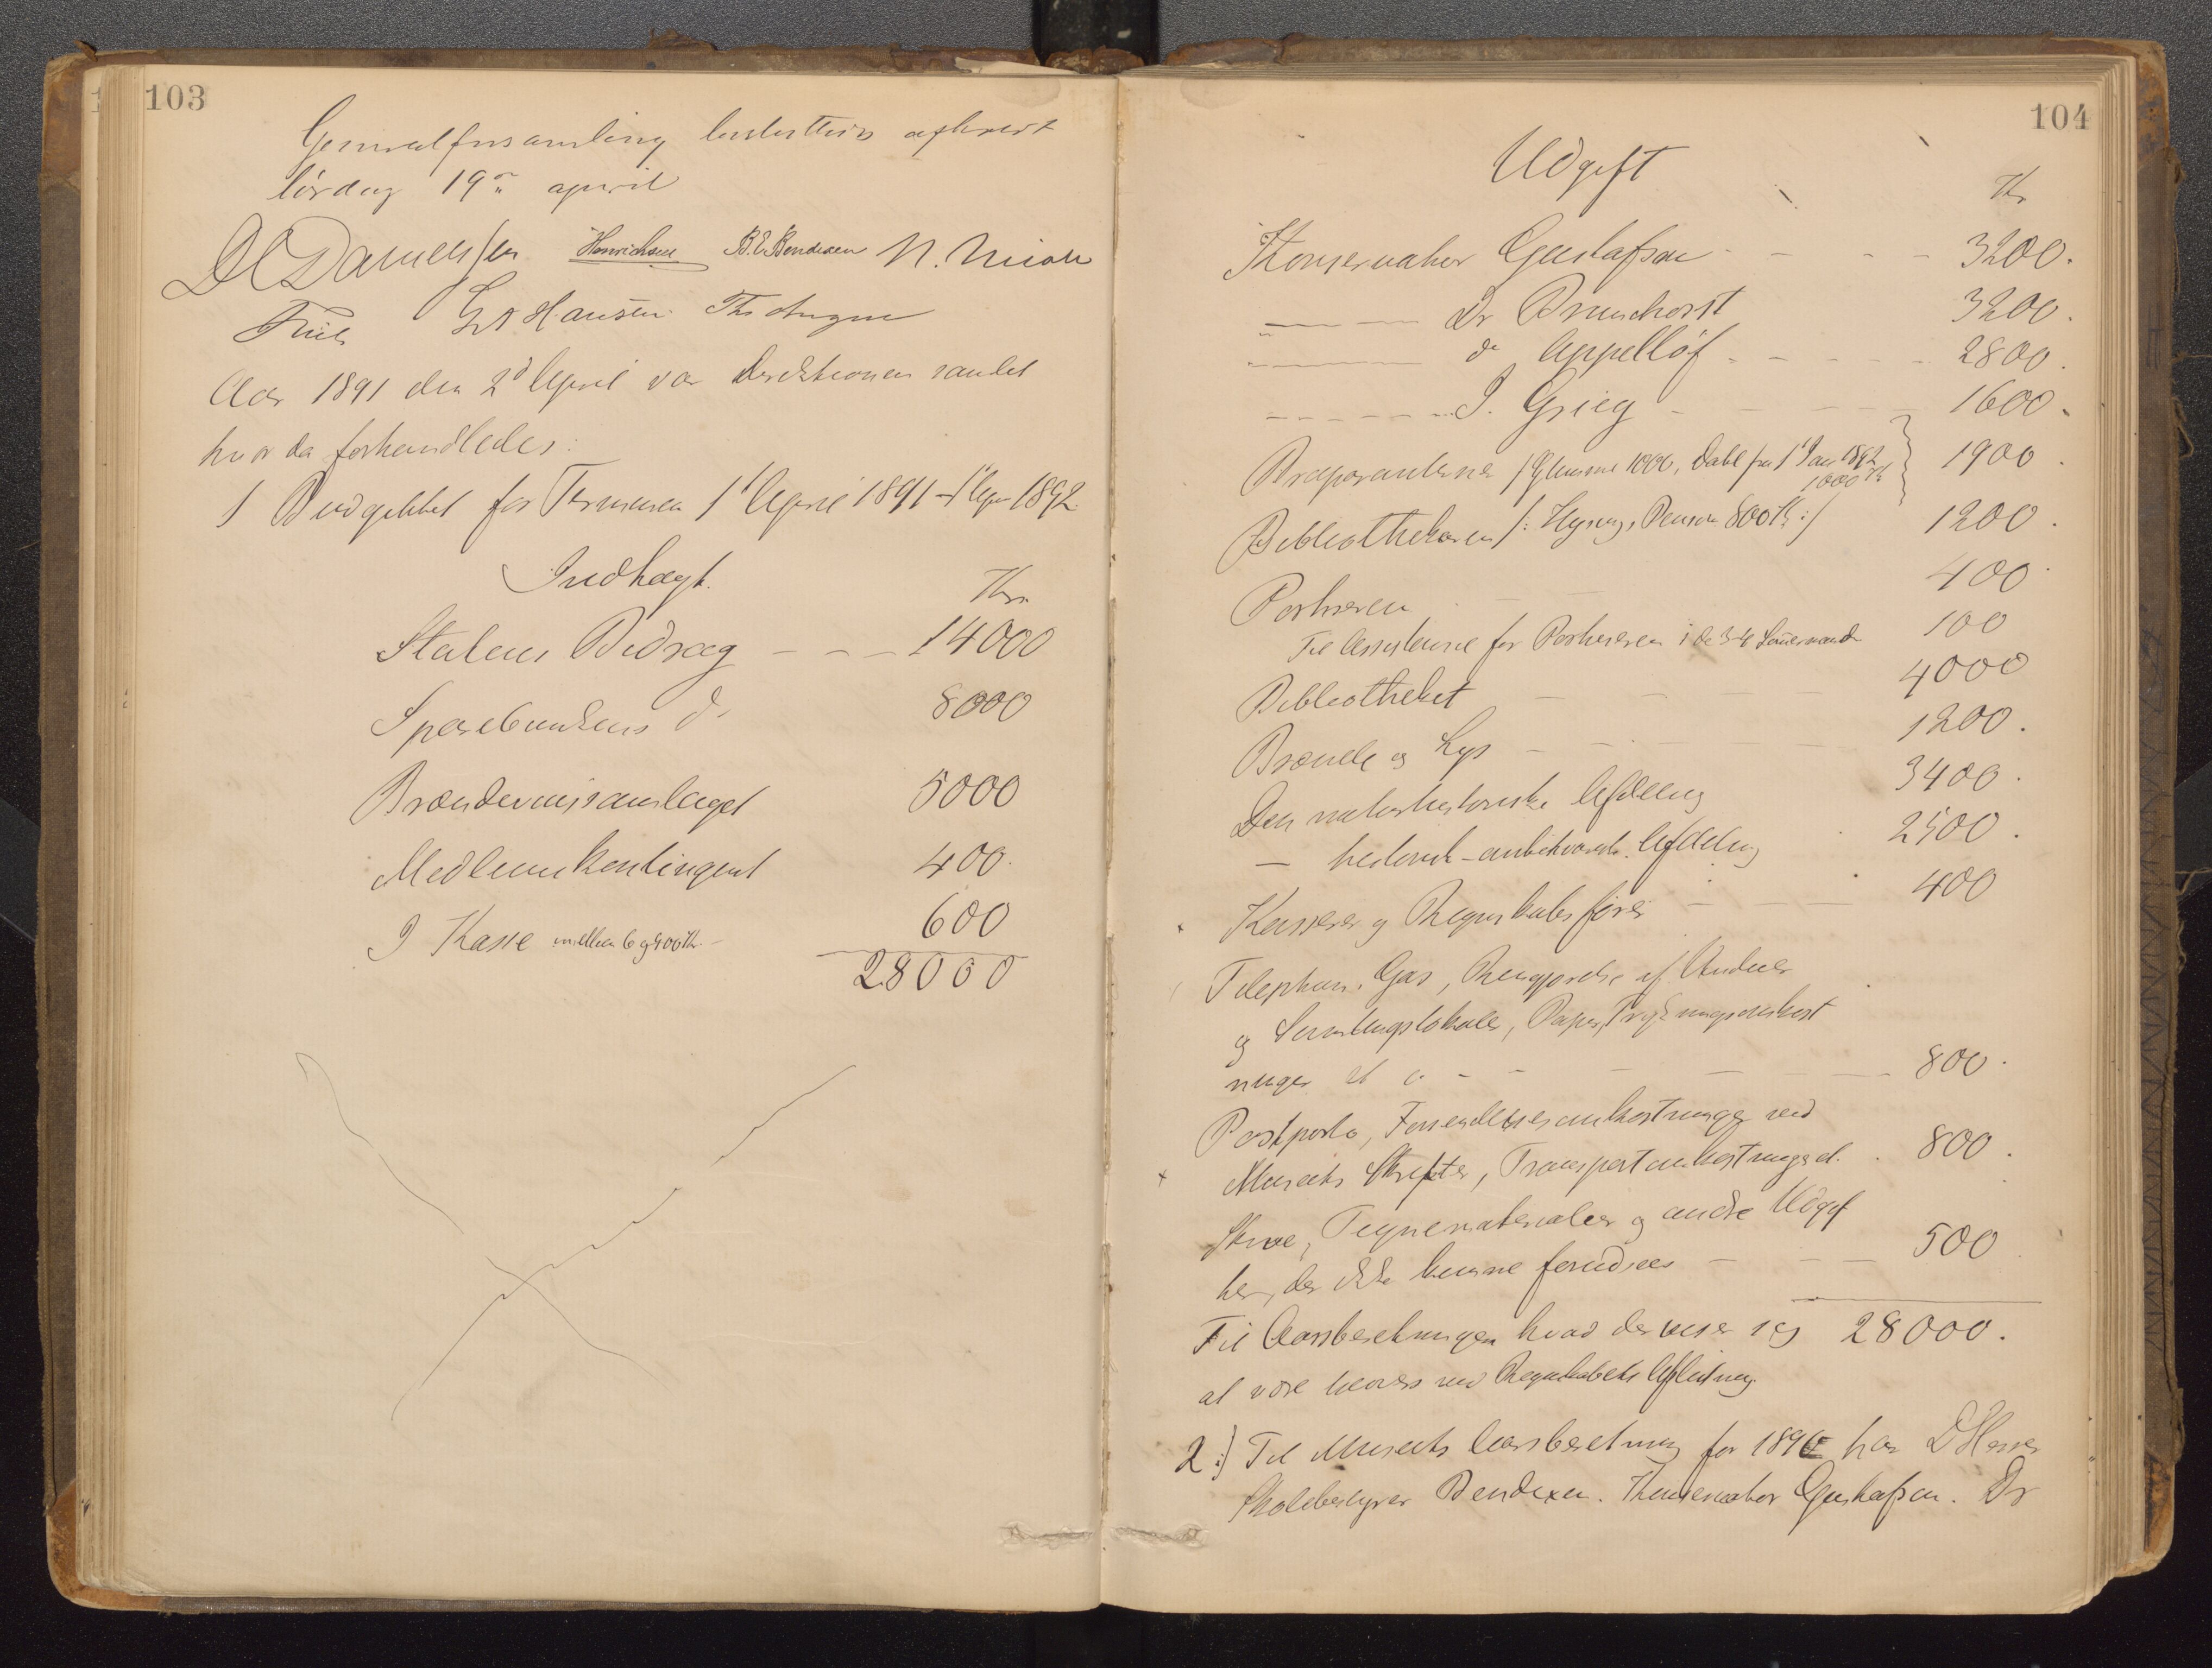 103
Generalforsamling besluttedes afholdt
lørdag 19de april
DC Danielssen Henrichsen B.E. Bendixen N. Nicoll
Friele GA Hansen
Aar 1891 den 2d April var Direktionen samlet
hvor da forhandledes:
1 Budgettet for Terminen 1' April 1891 – 1' Apr 1892
Indtægt.
Kr.
Statens Bidrag - - - 14000
Sparebankens do 8000
Brændevinssamlaget 5000
Medlemskontingent 400.
I Kasse mellem 6 og 700 Kr. - 600
28000
104
Udgift
Kr
Konservator Gustafson - - - 3200.
— — Dr Brunchorst 3200.
— — do Appellöf - - - 2800.
- - - - - J. Grieg - - - 1600.
Præparanterne /Glimme 1000, Dahl fra 1' Jan 1892 1000 Kr } 1900.
Bibliothekaren /: Hysing, Pension 800 Kr :/ 1200.
Portneren - - 400.
Til Assistense for Portneren i de 3-4 Somermaaneder 100
Bibliotheket - - - 4000
Brænde og Lys - - - 1200.
Den naturhistoriske Afdeling 3400.
— historisk-antikvariske Afdeling 2500.
Kasserer og Regnskabsfører - - - 400
Telephon, Gas, Rengjørelse af Vinduer
og Samlingslokaler, Papir, Trykningsomkost
ninger et c. - - - 800.
Postporto, Forsendelsesomkostninger ved
Museets Skrifter, Transportomkostninger et. . 800.
Skrive, Tegnematerialier og andre Udgif
ter, der ikke kunne forudsees - - - 500
Til Aarsberetningen hvad der viser sig 28000.
at være tilovers ved Regnskabets Afslutning.
2:) Til Museets Aarsberetning for 1890 har D'Herrer
Skolebestyrer Bendixen. Konservator Gustafson. Dr